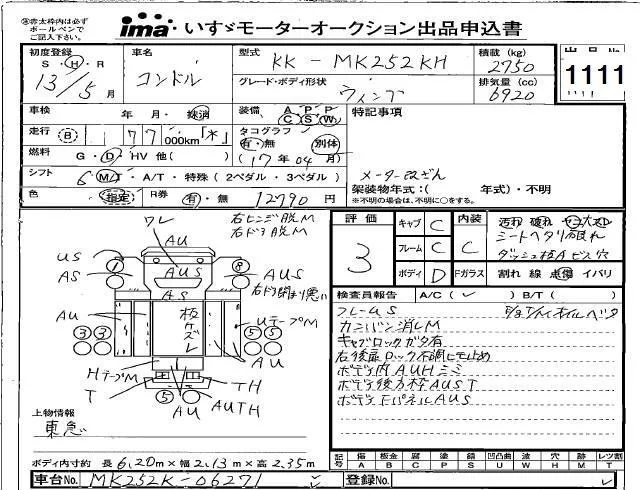 ※赤太枠内は必ず
ボールペンで
ご記入下さい。
ima いすゞモーターオークション出品申込書
初度登録 車名 型式 積載 (kg) 出品No
S・H・R コンドル KK-MK252KH 2750
13/5月 グレード・ボディ形状 ウィング 排気量 (cc) 6920
1111
車検 年 月・抹消 装備 A P P C S W 特記事項
走行 B 177 000km「木」 タコグラフ 有・無 別体
燃料 G・D・HV 他( ) (17年04月)
シフト 6 M/T・A/T・特殊(2ペダル・3ペダル) メーター改ざん
架装物年式:( 年式)・不明
※不明の場合は、不明に○をする。
色 指定 R券 有・無 12790円
ワレ 右ヒンジ脱M
右ドア脱M
AU
US 1 8 AUS
AS AUS 右ドア閉まり悪い
AS
AU 板ケズレ UテープM
3 3 5 5
AU
HテープM TH
T 5 AUTH
AU
上物情報
東急
ボディ内寸約 長6.20m×幅2.13m×高2.35m
車台No. MK252K-06271 登録No.
評価 3
キャブ C 内装 C 汚れ 破れ
フレーム C シートヘタリ破れ
ダッシュ板Aビス穴
ボディ D Fガラス 割れ 線 点傷 イバリ
検査員報告 A/C( ✓ ) B/T( )
フレームS
カンバン消しM
キャブロックガタ有
右後扉ロック不調ヒモ止め
ボデー内AUHミミ
ボデー後方枠AUST
ボデー下パネルAUS
記号 傷 板金 腐 塗 錆 凹凸曲 波 穴 跡 レツ割
A B C P S U W H M T